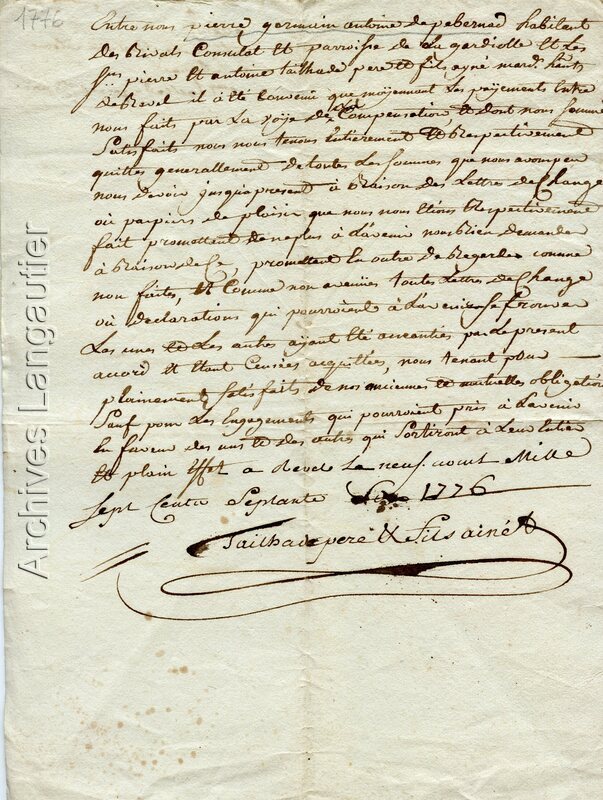 1776
Entre nous pierre germain antoine de pebernad habitant
des Rivals Consulat et parroisse de la gardiolle et Les
srs pierre et antoine tailhade pere et fils ayné mards habts
de Revel il a été Convenu que moyenant Les payements Entre
nous faits par La voye de Compensation et dont nous somme
satisfaits nous nous tenons Entierement et Respectivement
quittes generallement de toutes Les sommes que nous avons peu
nous devoir jusqua present à Raison des Lettres de Change
ou papiers de plaisir que nous nous Etions Respectivement
fait promettant de ne plus à L'avenir nous Rien demander
à Raison de Ce, promettant En outre de Regarder comme
non faites, et Comme non avenues toutes Lettres de Change
ou declarations qui pourroient à L'avenir se trouver
Les unes et Les autres ayant Eté aneanties par Le present
accord et Etant Censées acquittées, nous tenant pour
plainement satisfaits de nos anciennes et mutuelles obligations
sauf pour Les Engagements qui pourroient pris à L'avenir
En faveur des uns et des autres qui sortiront à Leur Entier
et plain Effet a Revel Le neuf aout Mille
sept Cents septante six 1776
Tailhade pere & fils ainé
Archives Langautier